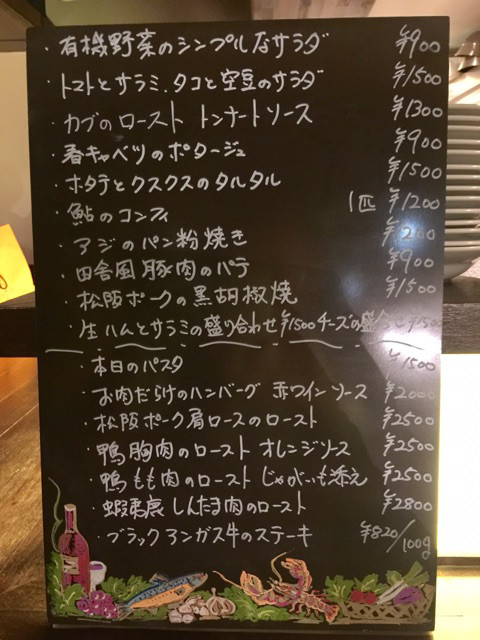 ・有機野菜のシンプルなサラダ ¥900
・トマトとサラミ.タコと空豆のサラダ ¥1500
・カブのロースト トンナートソース ¥1300
・春キャベツのポタージュ ¥900
・ホタテとクスクスのタルタル ¥1500
・鮎のコンフィ 1匹 ¥1200
・アジのパン粉焼き ¥1200
・田舎風豚肉のパテ ¥900
・松阪ポークの黒胡椒焼 ¥1500
・生ハムとサラミの盛り合わせ ¥1500 チーズの盛
・本日のパスタ ¥1500
・お肉だらけのハンバーグ 赤ワインソース ¥2000
・松阪ポーク肩ロースのロースト ¥2500
・鴨胸肉のロースト オレンジソース ¥2500
・鴨もも肉のロースト じゃがいも添え ¥2500
・蝦夷鹿 しんたま肉のロースト ¥2800
・ブラックアンガス牛のステーキ ¥820/100g